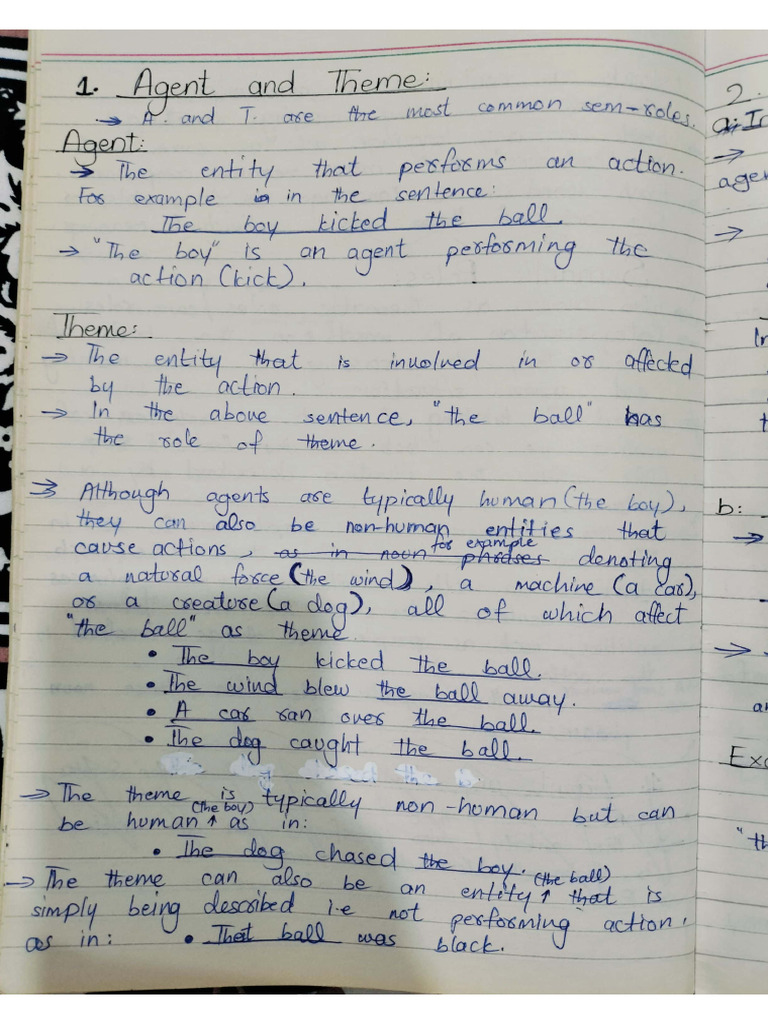 1. Agent and Theme:
→ A. and T. are the most common sem-roles.
Agent:
→ The entity that performs an action.
For example in in the sentence:
The boy kicked the ball.
→ "The boy" is an agent performing the
action (kick).
Theme:
→ The entity that is involved in or affected
by the action.
→ In the above sentence, "the ball" has
the role of theme.
→ Although agents are typically human (the boy),
they can also be non-human entities that
cause actions, as in noun phrases for example denoting
a natural force (the wind), a machine (a car),
or a creature (a dog), all of which affect
"the ball" as theme.
• The boy kicked the ball.
• The wind blew the ball away.
• A car ran over the ball.
• The dog caught the ball.
→ The theme is typically non-human but can
be human (the boy) as in:
• The dog chased the boy.
→ The theme can also be an entity (the ball) that is
simply being described i.e not performing action,
as in: • That ball was black.
2.
a:
→
agen
→
b:
→
→
Exa